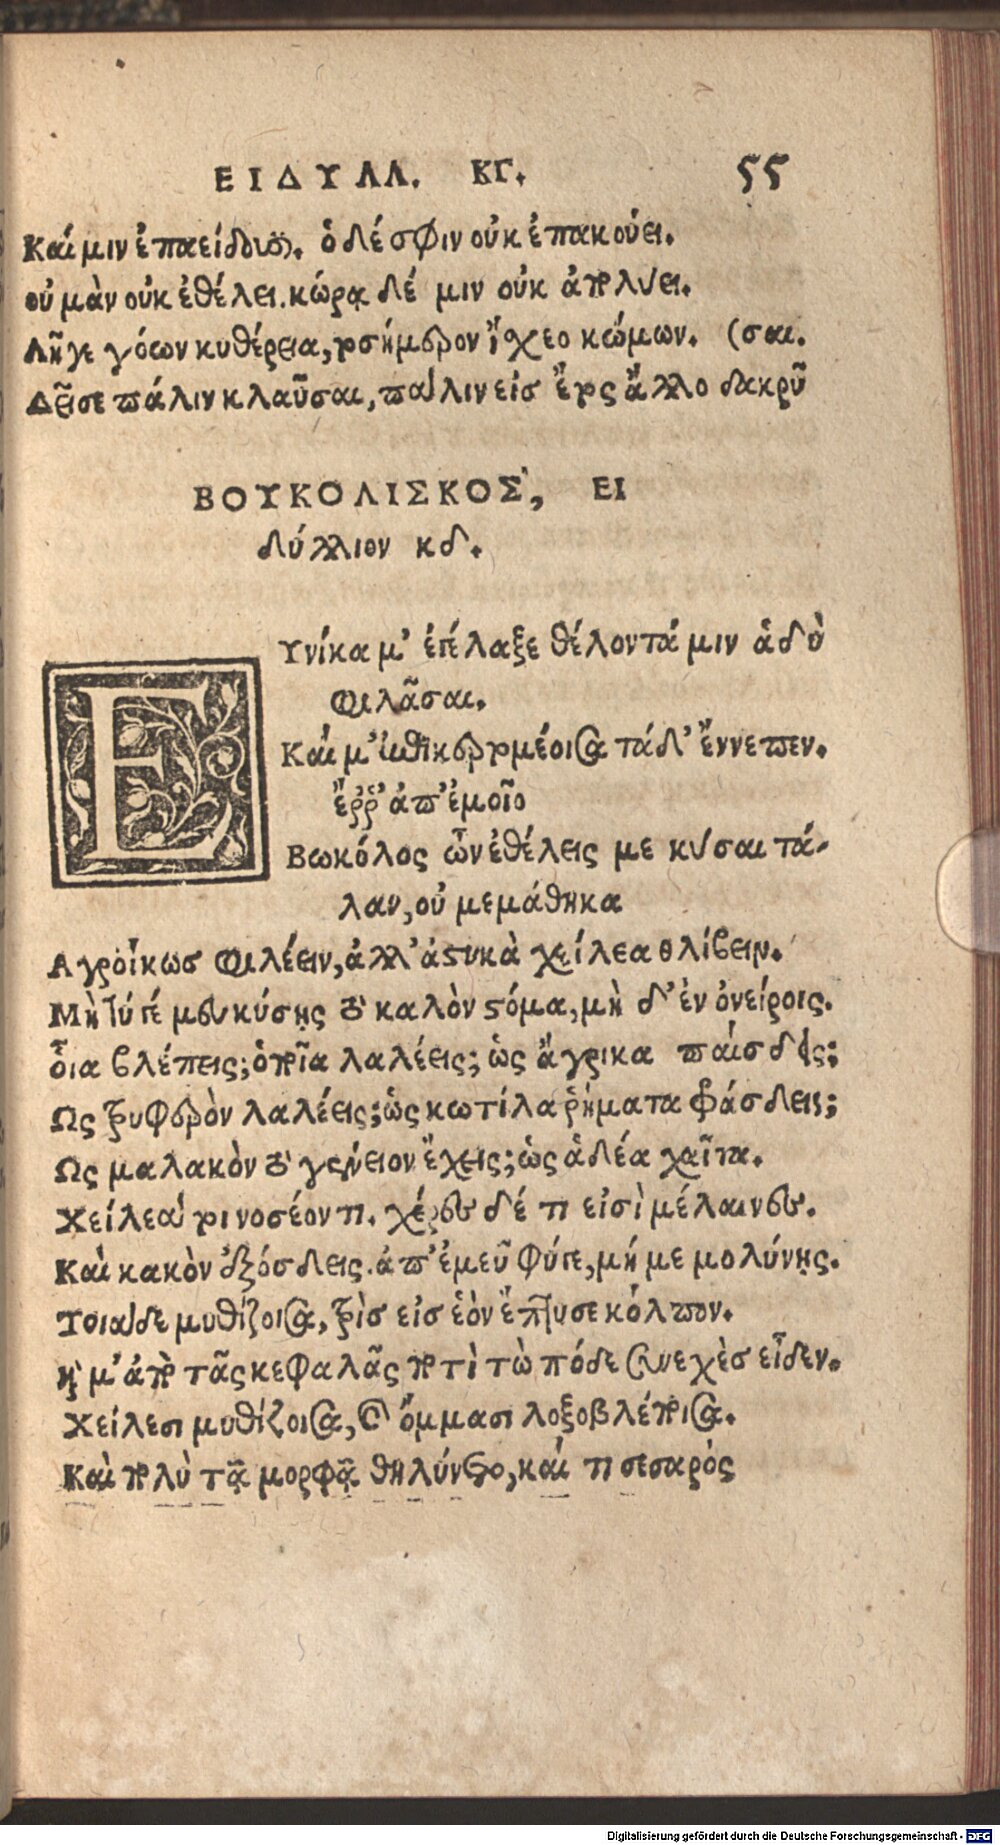 ΕΙΔΥΛΛ. ΚΓ. 55
Καί μιν ἐπαείδουσιν. ὁ δέ σφιν οὐκ ἐπακούει.
οὐ μὰν οὐκ ἐθέλει. κώρα δέ μιν οὐκ ἀπολύει.
Λῆγε γόων κυθέρεια, τοσήμερον ἴσχεο κώμων. (σαι.
Δεῖ σε πάλιν κλαῦσαι, πάλιν εἰσ ἔτος ἄλλο δακρῦ
ΒΟΥΚΟΛΙΣΚΟΣ, ΕΙ
δύλλιον κδ.
ΕΥνίκα μ' ἐγέλαξε θέλοντά μιν ἁδὺ
φιλᾶσαι.
Καί μ' ἐπικερτομέοισα τάδ' ἔννεπεν.
ἔρρ' ἀπ' ἐμοῖο
Βωκόλος ὢν ἐθέλεις με κύσαι τά-
λαν, οὐ μεμάθηκα
Αγροίκως φιλέειν, ἀλλ' ἀστυκὰ χείλεα θλίβειν.
Μὴ τύγέ μευ κύσῃς τὸ καλὸν στόμα, μὴ δ' ἐν ὀνείροις.
οἷα βλέπεις; ὁποῖα λαλέεις; ὡς ἄγρικα παίσδεις;
Ως τρυφερὸν λαλέεις; ὡς κωτίλα ῥήματα φάσδεις;
Ως μαλακὸν τὸ γένειον ἔχεις; ὡς ἁδέα χαῖτα.
Χείλεά τοι νοσέοντι. χέρες δέ τι εἰσὶ μέλαιναι.
Καὶ κακὸν ὀξόσδεις. ἀπ' ἐμεῦ φύγε, μή με μολύνῃς.
Τοιάδε μυθίζοισα, τρὶσ εἰσ ἑὸν ἔπτυσε κόλπον.
καί μ' ἀπὸ τᾶς κεφαλᾶς ποτὶ τὼ πόδε συνεχὲσ εἶδεν.
Χείλεσι μυθίζοισα, καὶ ὄμμασι λοξοβλέποισα.
Καὶ πολὺ τᾷ μορφᾷ θηλύνετο, καί τι σεσαρὸς
Digitalisierung gefördert durch die Deutsche Forschungsgemeinschaft - DFG